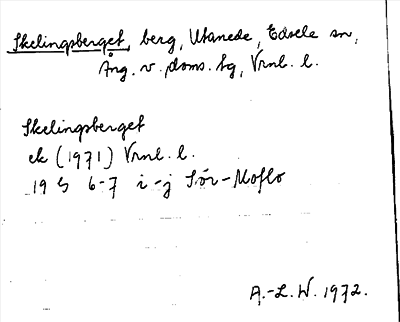 Skelingsberget, berg, Utanede, Edsele sn,
Ång. v. doms. tg, Vrnl. l.
Skelingsberget
ek (1971) Vrnl. l.
19 G 6-7 i-j Sör-Moflo
A.-L. W. 1972.